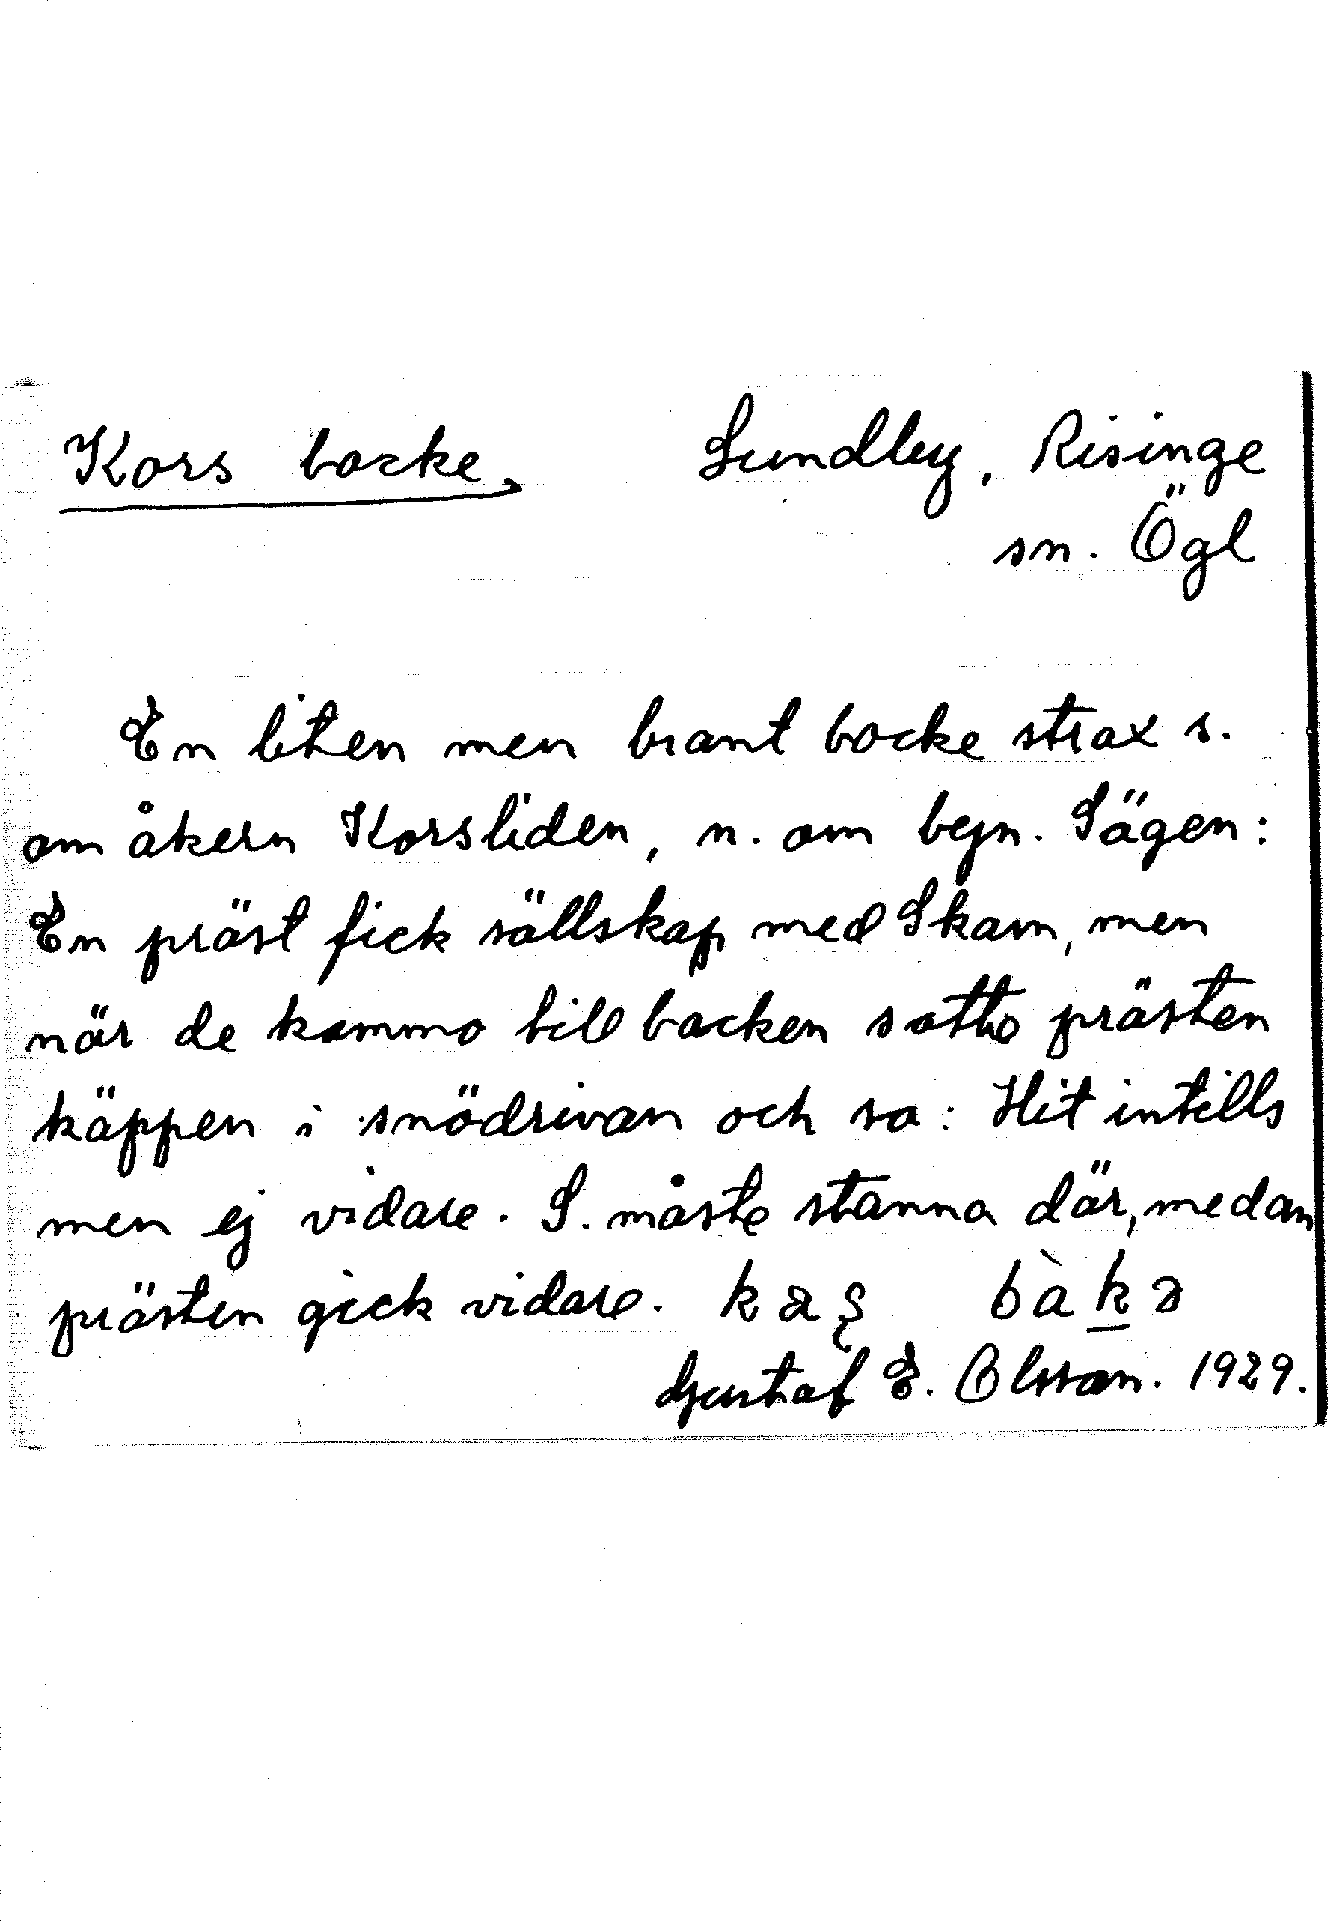 Kors backe,
Sundby, Risinge
sn. Ögl
En liten men brant backe strax s.
om åkern Korsliden, n. om byn. Sägen:
En präst fick sällskap med Skam, men
när de kommo till backen satte prästen
käppen i snödrivan och sa: Hit intills
men ej vidare. S. måste stanna där, medan
prästen gick vidare. bàkə
Gustaf E. Olsson. 1929.